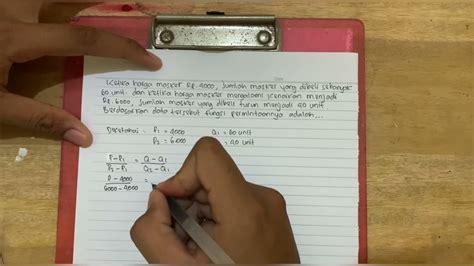 Ketika harga masker Rp. 4000, jumlah masker yang dibeli sebanyak
60 unit. dan ketika harga masker mengalami kenaikan menjadi
Rp. 6000, jumlah masker yang dibeli turun menjadi 40 unit
Berdasarkan data tersebut fungsi permintaannya adalah...
Diketahui : P₁ = 4000 Q₁ = 60 unit
P₂ = 6.000 = 40 unit
P - P₁ = Q - Q₁
P₂ - P₁ Q₂ - Q₁
P - 4000 =
6000 - 4000